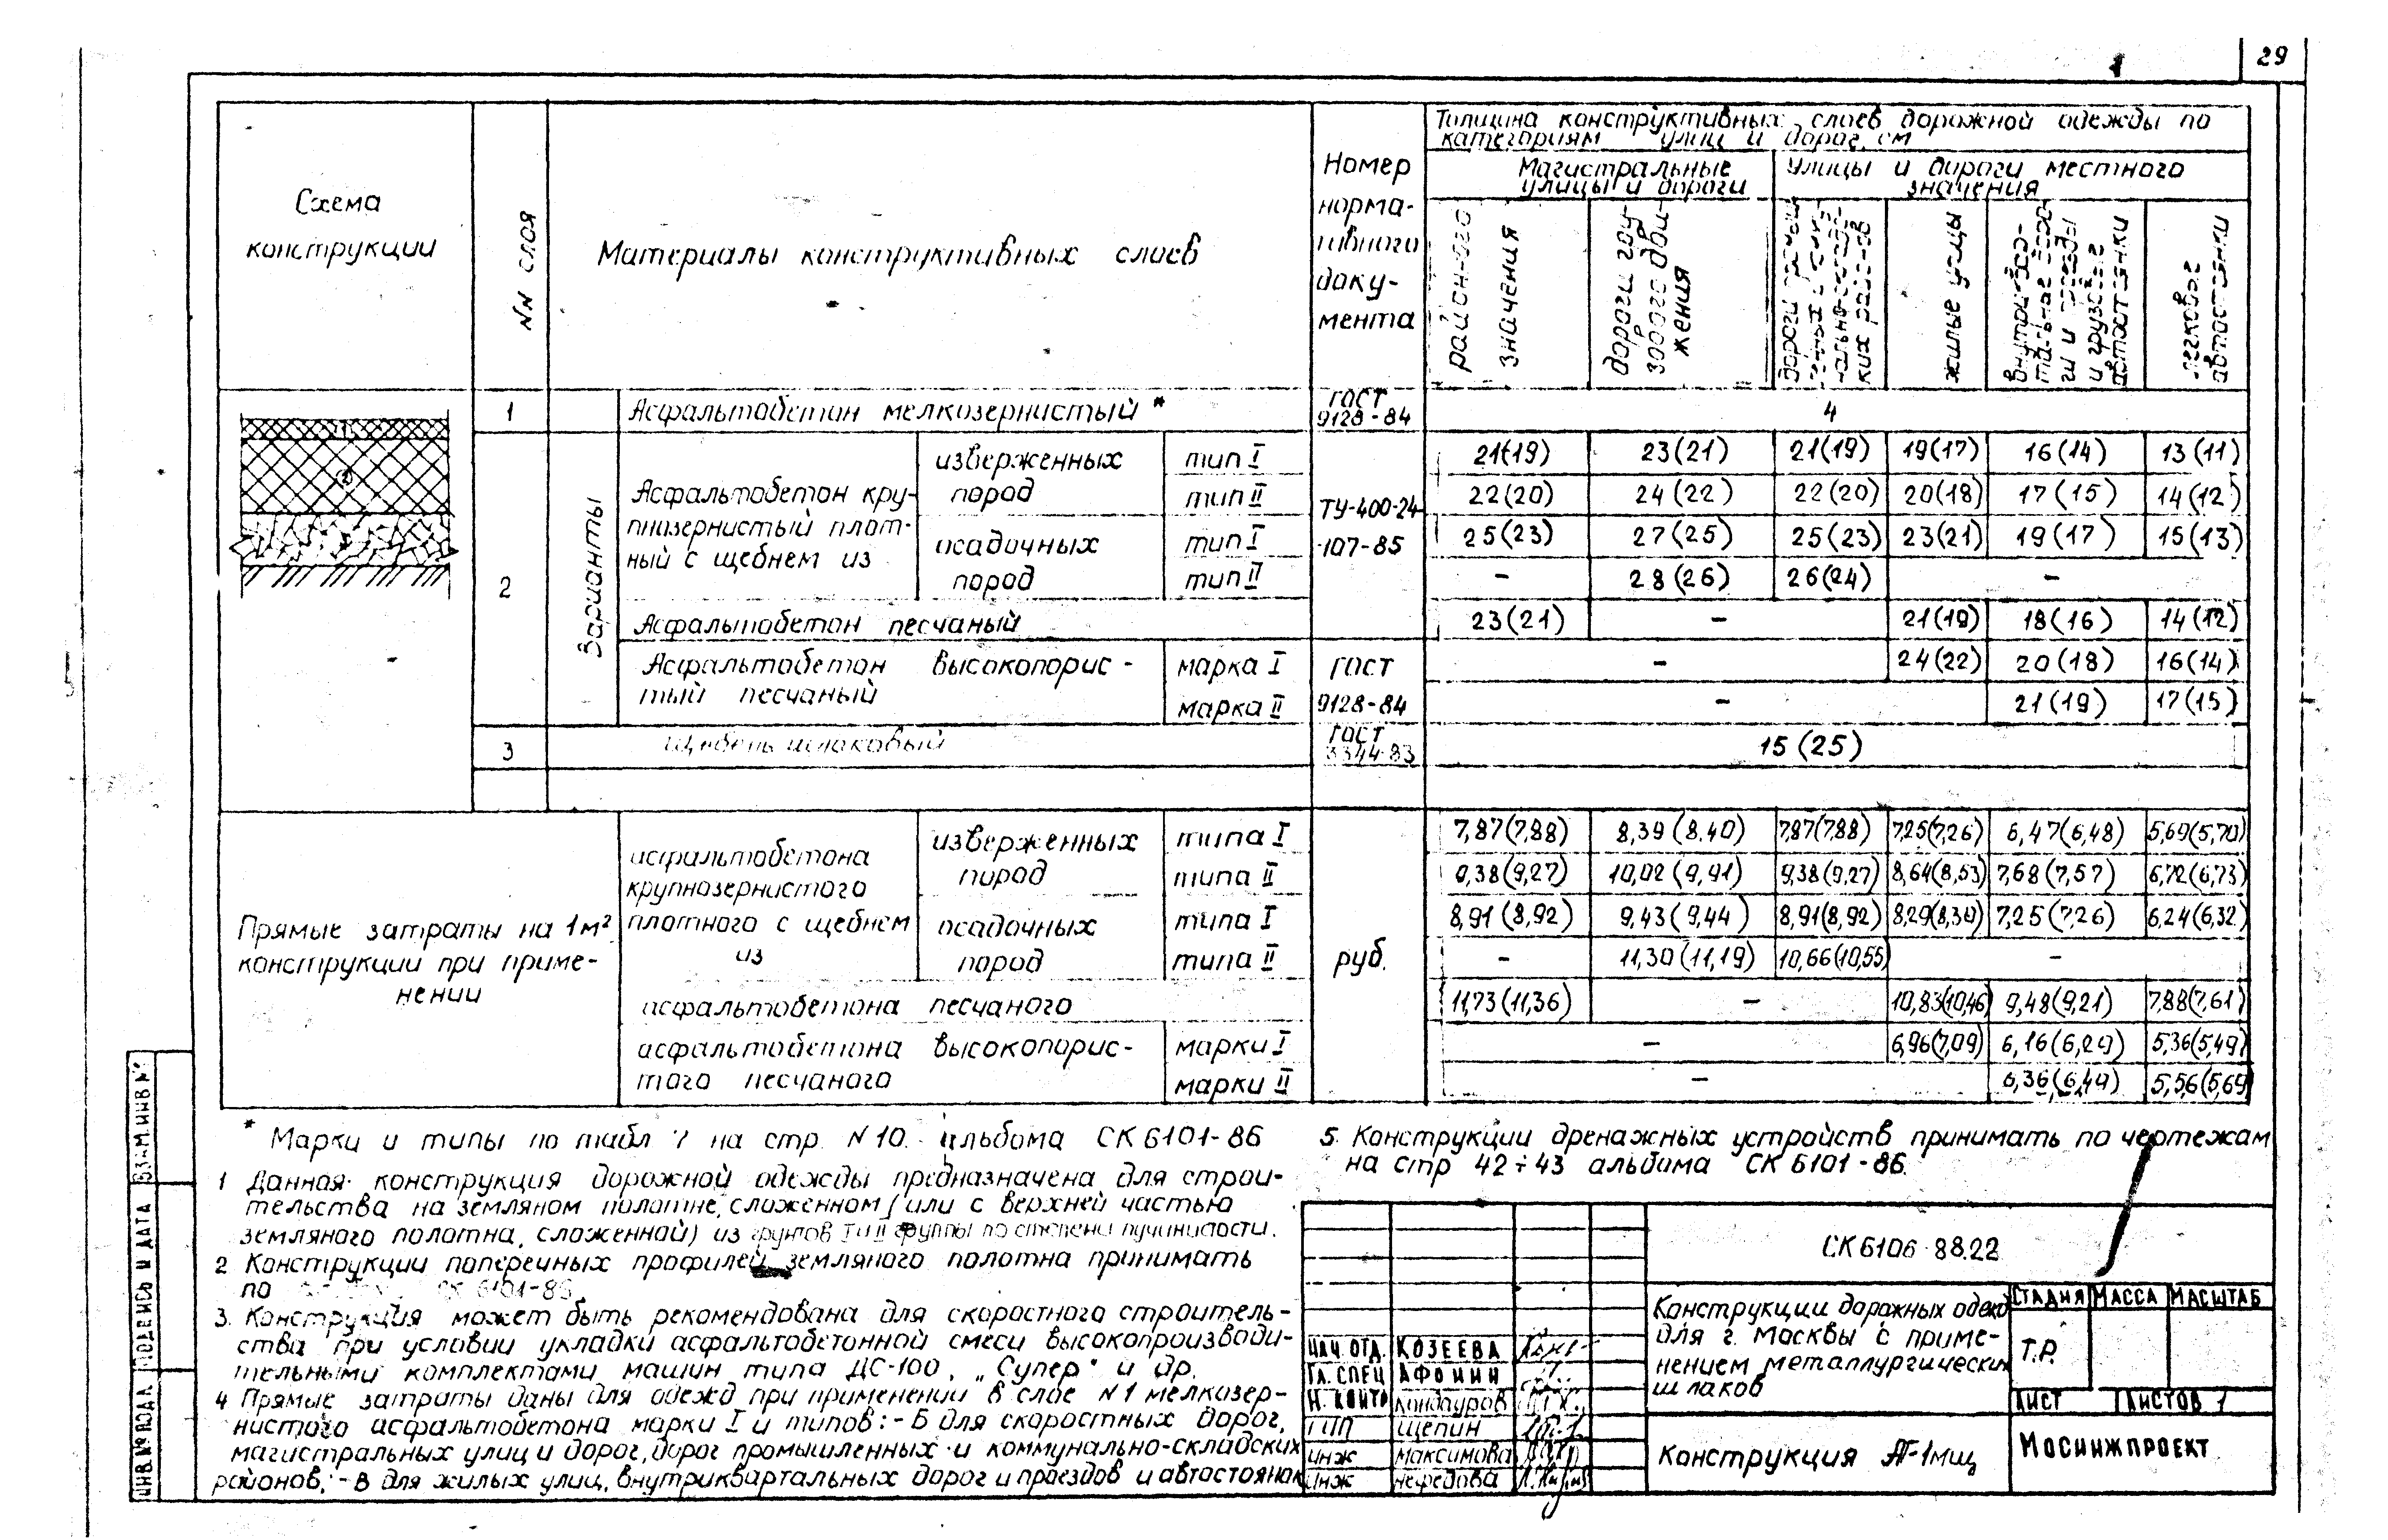 29
Схема
конструкции
NN слоя
Материалы конструктивных слоев
Номер
норма-
тивного
доку-
мента
Толщина конструктивных слоев дорожной одежды по
категориям улиц и дорог, см
Магистральные
улицы и дороги
Улицы и дороги местного
значения
район-ого
значения
дороги гру-
зового дви-
жения
жилые улицы
и грузовые
автостоянки
легковые
автостоянки
1 Асфальтобетон мелкозернистый * ГОСТ
9128-84 4
2
Варианты
Асфальтобетон кру-
пнозернистый плот-
ный с щебнем из
изверженных
пород
осадочных
пород
ТУ-400-24-
-107-85
тип I 21(19) 23(21) 21(19) 19(17) 16(14) 13(11)
тип II 22(20) 24(22) 22(20) 20(18) 17(15) 14(12)
тип I 25(23) 27(25) 25(23) 23(21) 19(17) 15(13)
тип II - 28(26) 26(24) -
Асфальтобетон песчаный 23(21) - 21(19) 18(16) 14(12)
Асфальтобетон высокопорис-
тый песчаный
ГОСТ
9128-84
марка I - 24(22) 20(18) 16(14)
марка II - 21(19) 17(15)
3 Щебень шлаковый ГОСТ
3344-83 15(25)
Прямые затраты на 1м²
конструкции при приме-
нении
асфальтобетона
крупнозернистого
плотного с щебнем
из
изверженных
пород
осадочных
пород
руб.
типа I 7,87(7,88) 8,39(8,40) 7,87(7,88) 7,25(7,26) 6,47(6,48) 5,69(5,70)
типа II 9,38(9,27) 10,02(9,91) 9,38(9,27) 8,64(8,53) 7,68(7,57) 6,72(6,73)
типа I 8,91(8,92) 9,43(9,44) 8,91(8,92) 8,29(8,30) 7,25(7,26) 6,24(6,32)
типа II - 11,30(11,19) 10,66(10,55) -
асфальтобетона песчаного 11,73(11,36) - 10,83(10,46) 9,48(9,21) 7,88(7,61)
асфальтобетона высокопорис-
того песчаного
марки I - 6,96(7,09) 6,16(6,29) 5,36(5,49)
марки II - 6,36(6,49) 5,56(5,69)
* Марки и типы по табл 7 на стр. N 10. альбома СК 6101-86
1 Данная конструкция дорожной одежды предназначена для строи-
тельства на земляном полотне, сложенном (или с верхней частью
земляного полотна, сложенной) из грунтов I и II группы по степени пучинистости.
2 Конструкции поперечных профилей земляного полотна принимать
по СК 6101-86
3. Конструкция может быть рекомендована для скоростного строитель-
ства при условии укладки асфальтобетонной смеси высокопроизводи-
тельными комплектами машин типа ДС-100, „Супер" и др.
4 Прямые затраты даны для одежд при применении в слое N 1 мелкозер-
нистого асфальтобетона марки I и типов: - Б для скоростных дорог,
магистральных улиц и дорог, дорог промышленных и коммунально-складских
районов; - В для жилых улиц, внутриквартальных дорог и проездов и автостоянок
5. Конструкции дренажных устройств принимать по чертежам
на стр 42÷43 альбома СК 6101-86.
СК 6106-88.22
Конструкции дорожных одежд
для г. Москвы с приме-
нением металлургических
шлаков
СТАДИЯ МАССА МАСШТАБ
Т.Р.
ЛИСТ ЛИСТОВ 1
Конструкция АГ-1мщ
МОСИНЖПРОЕКТ
НАЧ. ОТД. КОЗЕЕВА
ГЛ. СПЕЦ АФОНИН
Н. КОНТР Кондауров
ГИП Щепин
ИНЖ Максимова
ИНЖ Нефедова
ИНВ.№ ПОДЛ. ПОДПИСЬ И ДАТА ВЗАМ.ИНВ.№